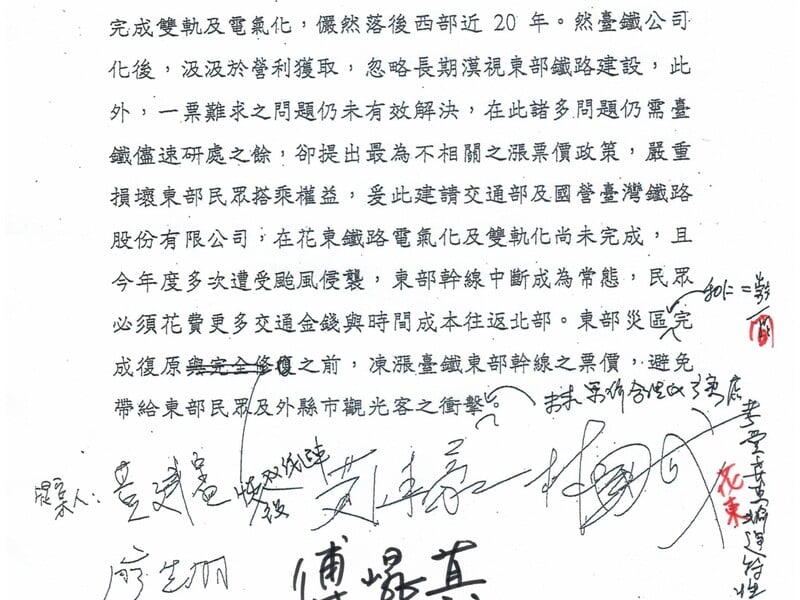 完成雙軌及電氣化，儼然落後西部近 20 年。然臺鐵公司
化後，汲汲於營利獲取，忽略長期漠視東部鐵路建設，此
外，一票難求之問題仍未有效解決，在此諸多問題仍需臺
鐵儘速研處之餘，卻提出最為不相關之漲票價政策，嚴重
損壞東部民眾搭乘權益，爰此建請交通部及國營臺灣鐵路
股份有限公司，在花東鐵路電氣化及雙軌化尚未完成，且
今年度多次遭受颱風侵襲，東部幹線中斷成為常態，民眾
必須花費更多交通金錢與時間成本往返北部。東部災區完
成復原與完全修復之前，凍漲臺鐵東部幹線之票價，避免
帶給東部民眾及外縣市觀光客之衝擊。
提案人：
花東
傅崐萁